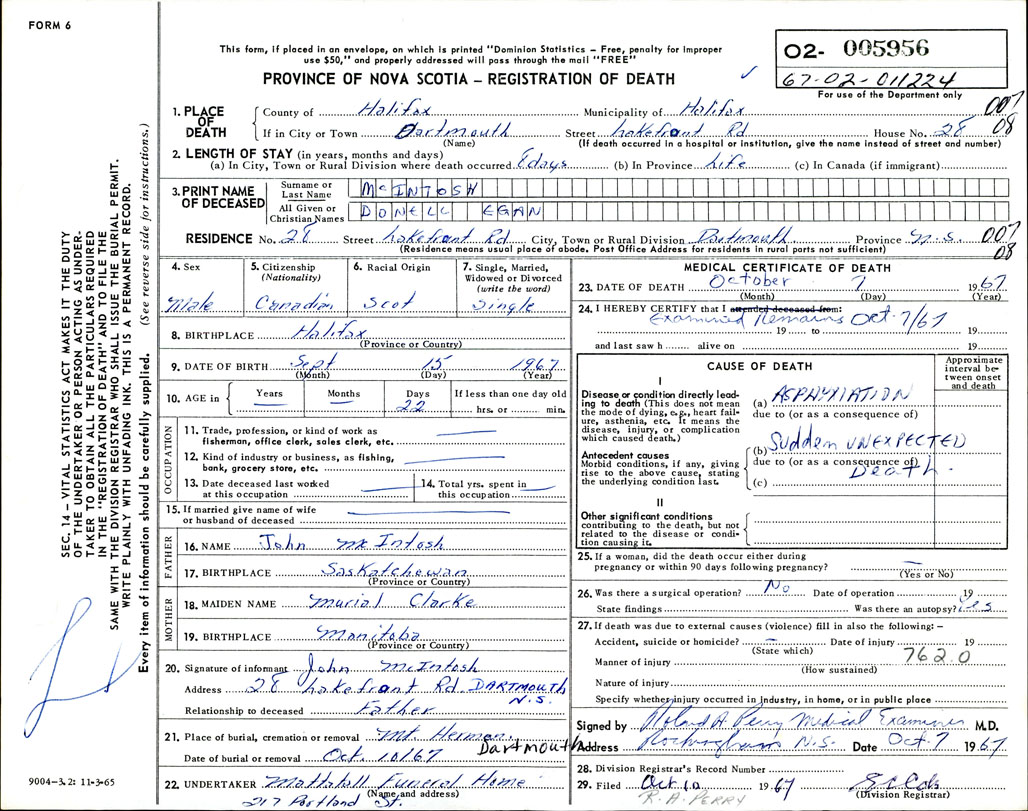 FORM 6
This form, if placed in an envelope, on which is printed "Dominion Statistics – Free, penalty for improper
use $50," and properly addressed will pass through the mail "FREE"
PROVINCE OF NOVA SCOTIA – REGISTRATION OF DEATH
02- 005956
67-02-011224
For use of the Department only
SEC. 14 – VITAL STATISTICS ACT MAKES IT THE DUTY
OF THE UNDERTAKER OR PERSON ACTING AS UNDER-
TAKER TO OBTAIN ALL THE PARTICULARS REQUIRED
IN THE "REGISTRATION OF DEATH" AND TO FILE THE
SAME WITH THE DIVISION REGISTRAR WHO SHALL ISSUE THE BURIAL PERMIT.
WRITE PLAINLY WITH UNFADING INK. THIS IS A PERMANENT RECORD.
Every item of information should be carefully supplied. (See reverse side for instructions.)
1. PLACE OF DEATH
County of Halifax Municipality of Halifax 007
If in City or Town Dartmouth Street Lakefront Rd House No. 28 08
(Name) (If death occurred in a hospital or institution, give the name instead of street and number)
2. LENGTH OF STAY (in years, months and days)
(a) In City, Town or Rural Division where death occurred 8 days (b) In Province Life (c) In Canada (if immigrant)
3. PRINT NAME OF DECEASED
Surname or Last Name McINTOSH
All Given or Christian Names DONELL EGAN
RESIDENCE No. 28 Street Lakefront Rd City, Town or Rural Division Dartmouth Province N.S. 007
(Residence means usual place of abode. Post Office Address for residents in rural parts not sufficient) 08
4. Sex Male
5. Citizenship (Nationality) Canadian
6. Racial Origin Scot
7. Single, Married, Widowed or Divorced (write the word) Single
8. BIRTHPLACE Halifax
(Province or Country)
9. DATE OF BIRTH Sept 15 1967
(Month) (Day) (Year)
10. AGE in Years Months Days If less than one day old
22 hrs. or min.
OCCUPATION
11. Trade, profession, or kind of work as
fisherman, office clerk, sales clerk, etc.
12. Kind of industry or business, as fishing,
bank, grocery store, etc.
13. Date deceased last worked
at this occupation
14. Total yrs. spent in
this occupation
15. If married give name of wife
or husband of deceased
FATHER
16. NAME John McIntosh
17. BIRTHPLACE Saskatchewan
(Province or Country)
MOTHER
18. MAIDEN NAME Murial Clarke
19. BIRTHPLACE Manitoba
(Province or Country)
20. Signature of informant John McIntosh
Address 28 Lakefront Rd DARTMOUTH N.S.
Relationship to deceased Father
21. Place of burial, cremation or removal Mt Hermon, Dartmouth
Date of burial or removal Oct. 10/67
22. UNDERTAKER Mattatall Funeral Home
(Name and address)
217 Portland St.
MEDICAL CERTIFICATE OF DEATH
23. DATE OF DEATH October 7 1967
(Month) (Day) (Year)
24. I HEREBY CERTIFY that I attended deceased from:
Examined Remains Oct 7/67
19 to 19
and last saw h alive on 19
CAUSE OF DEATH
Approximate interval between onset and death
I
Disease or condition directly lead-
ing to death (This does not mean
the mode of dying, e.g., heart fail-
ure, asthenia, etc. It means the
disease, injury, or complication
which caused death.)
(a) ASPHYXIATION
due to (or as a consequence of)
Antecedent causes
Morbid conditions, if any, giving
rise to the above cause, stating
the underlying condition last.
(b) Sudden UNEXPECTED
due to (or as a consequence of)
Death.
(c)
II
Other significant conditions
contributing to the death, but not
related to the disease or condi-
tion causing it.
25. If a woman, did the death occur either during
pregnancy or within 90 days following pregnancy?
(Yes or No)
26. Was there a surgical operation? No Date of operation 19
State findings Was there an autopsy? Yes
27. If death was due to external causes (violence) fill in also the following: –
Accident, suicide or homicide? Date of injury 19
(State which)
Manner of injury 762.0
(How sustained)
Nature of injury
Specify whether injury occurred in industry, in home, or in public place
Signed by Roland A Perry Medical Examiner M.D.
Address Rockingham N.S. Date Oct. 7 1967
28. Division Registrar's Record Number
29. Filed Oct 10 1967
(Division Registrar)
R. A. PERRY
9004-3.2: 11-3-65